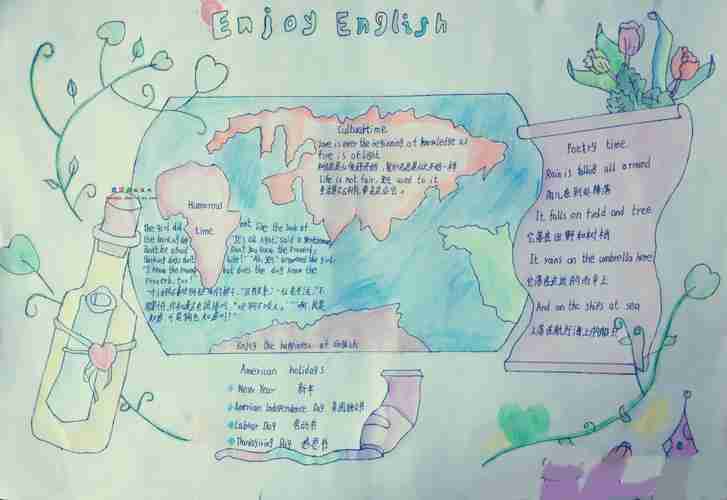 Enjoy English
Culturaltime
Love is ever the beginning of knowledge as
fire is of light
Life is not fair, get used to it
Humorous
time
the boy did not like the look of
the barking dog
"It's all right," said a gentleman,
"Don't be afraid. Don't you know the proverb:
Barking dogs don't bite?" "Ah, yes," answered the boy,
"I know the proverb, but does the dog know the
Proverb, too?"
Enjoy the happiness of English
Poetry time
Rain is falling all around
雨儿在到处降落
It falls on field and tree
它落在田野和树梢
It rains on the umbrella here
它落在这边的雨伞上
And on the ships at sea
又落在航行海上的船只
American holidays
New Year 新年
American Independence Day 美国独立日
Labour Day 劳动节
Thanksgiving Day 感恩节